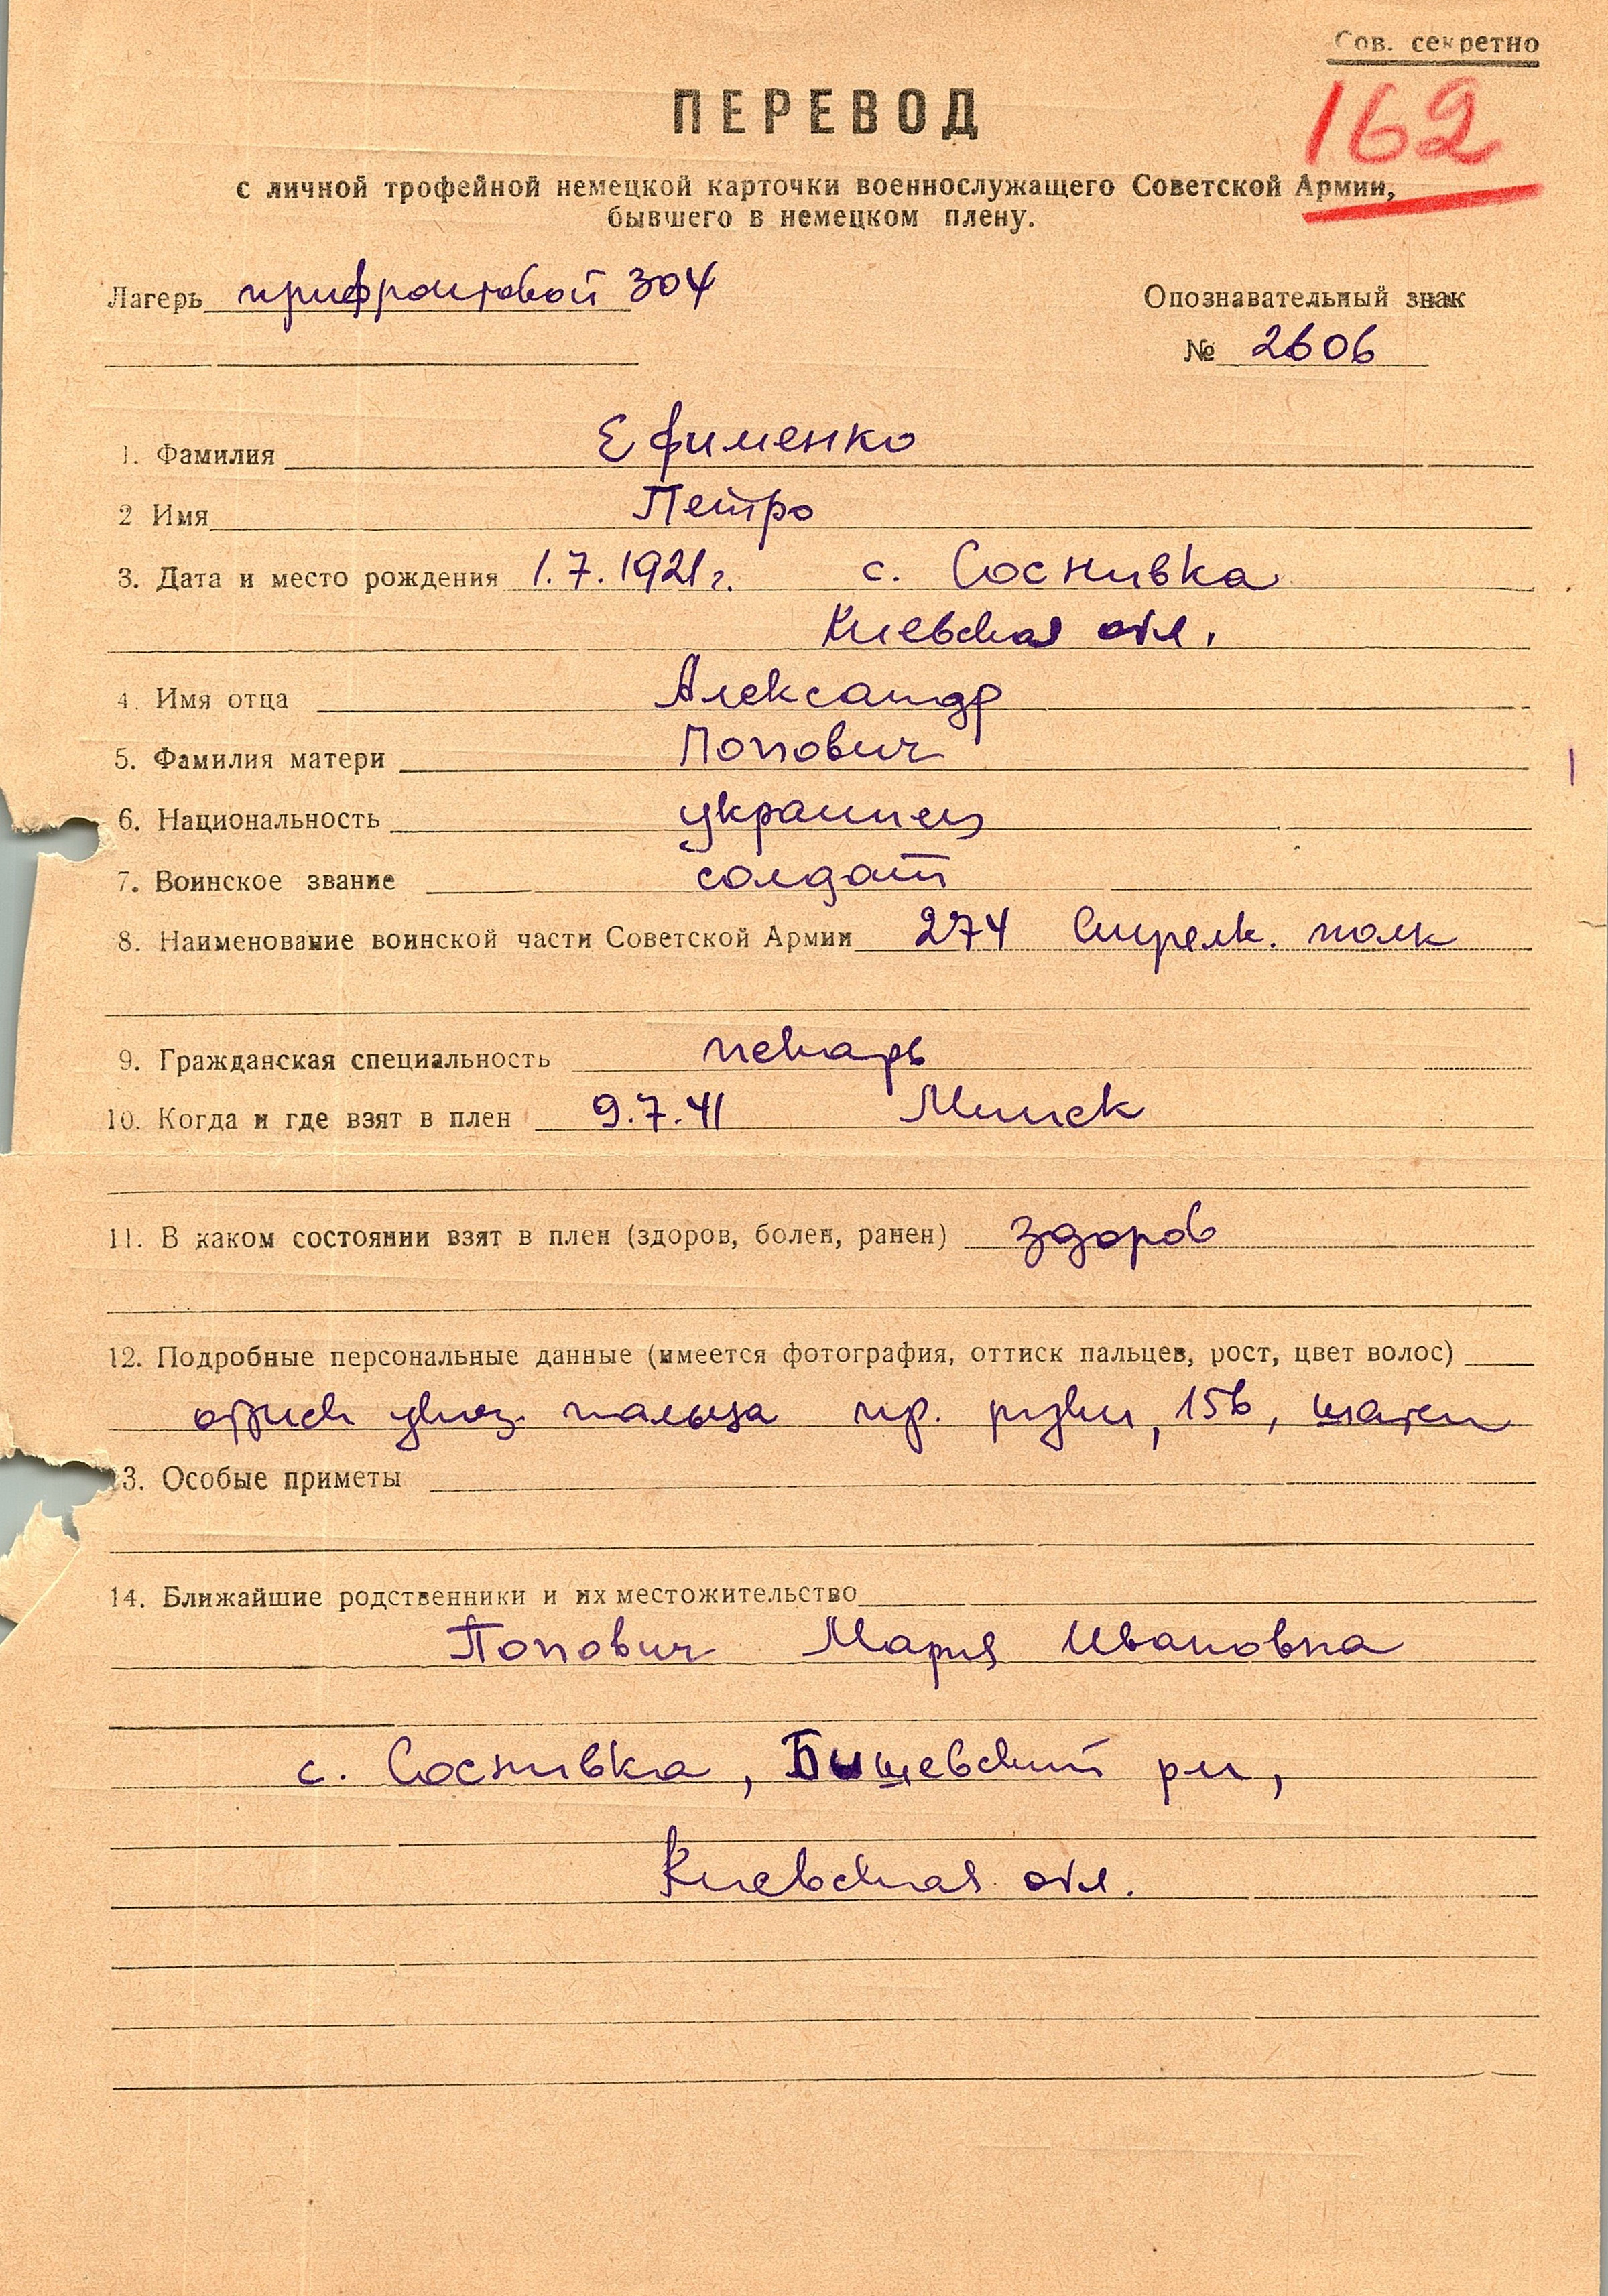 Сов. секретно
162
ПЕРЕВОД
с личной трофейной немецкой карточки военнослужащего Советской Армии,
бывшего в немецком плену.
Лагерь прифронтовой 304
Опознавательный знак
№ 2606
1. Фамилия Ефименко
2 Имя Петро
3. Дата и место рождения 1.7.1921 г. с. Соснивка
Киевская обл.
4. Имя отца Александр
5. Фамилия матери Попович
6. Национальность украинец
7. Воинское звание солдат
8. Наименование воинской части Советской Армии 274 Стрелк. полк
9. Гражданская специальность пекарь
10. Когда и где взят в плен 9.7.41 Минск
11. В каком состоянии взят в плен (здоров, болен, ранен) здоров
12. Подробные персональные данные (имеется фотография, оттиск пальцев, рост, цвет волос)
указ. пальца пр. руки, 156, шатен
13. Особые приметы
14. Ближайшие родственники и их местожительство
Попович Мария Ивановна
с. Соснивка, Бышевский рн,
Киевская обл.